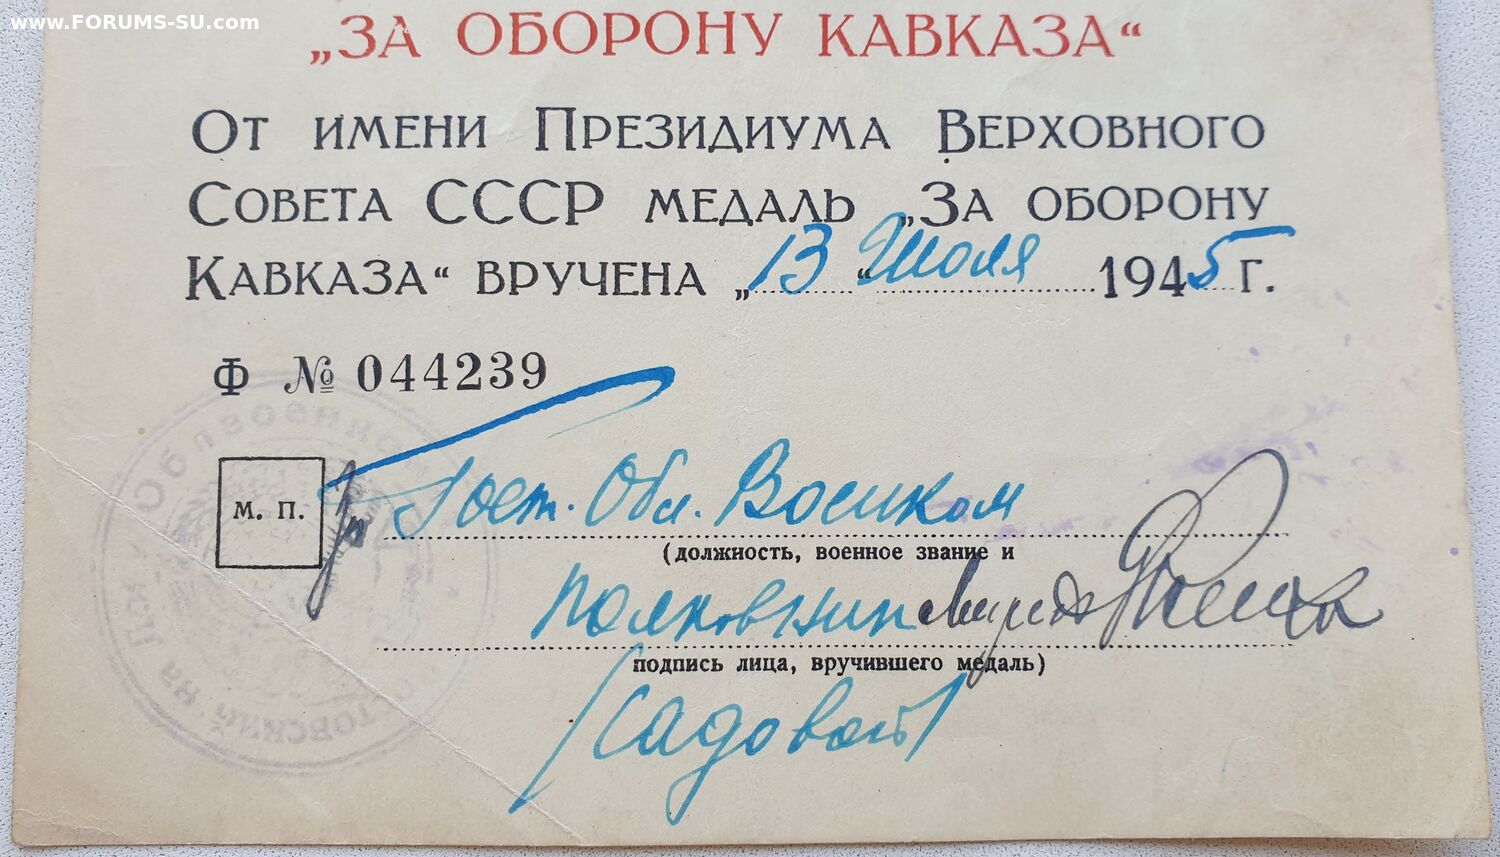 www.FORUMS-SU.com
„ЗА ОБОРОНУ КАВКАЗА“
ОТ ИМЕНИ ПРЕЗИДИУМА ВЕРХОВНОГО
СОВЕТА СССР МЕДАЛЬ „ЗА ОБОРОНУ
КАВКАЗА“ ВРУЧЕНА „13“ Июля 1945 г.
Ф № 044239
М. П.
Рост. Обл. Военком
(должность, военное звание и
полковник
подпись лица, вручившего медаль)
/Садовой/